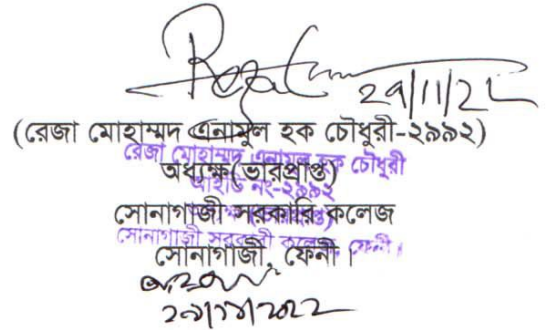 29/11/22
(রেজা মোহাম্মদ এনামুল হক চৌধুরী-২৯৯২)
রেজা মোহাম্মদ এনামুল হক চৌধুরী
অধ্যক্ষ(ভারপ্রাপ্ত)
আইডি নং-২৯৯২
সোনাগাজী সরকারি কলেজ
সোনাগাজী সরকারী কলেজ, ফেনী।
সোনাগাজী, ফেনী।
২৯/১১/২০২২